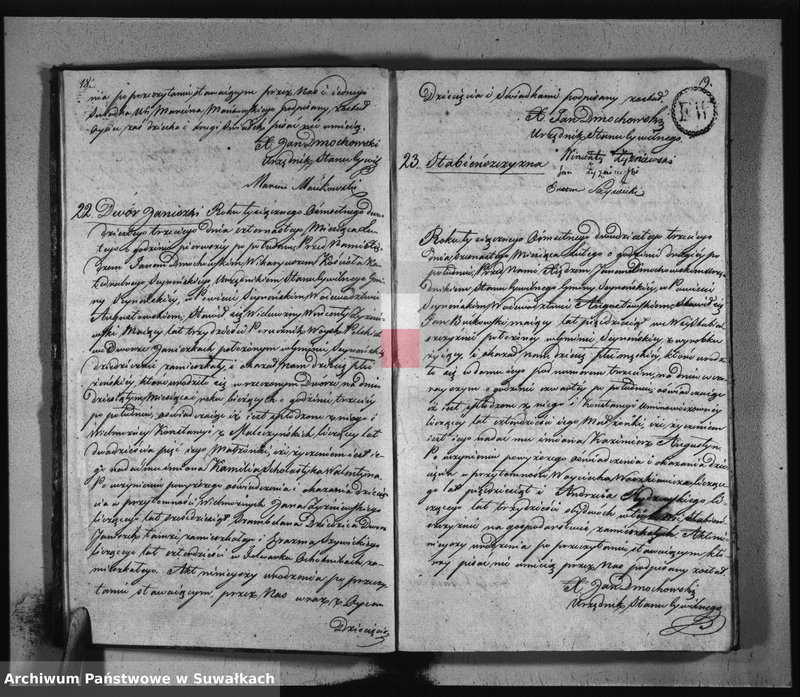 18.
nia po przeczytaniu stawaiącym przez Nas i iednego
Świadka Ur. Marcina podpisany został
Oyciec zaś dziecka i drugi świadek pisać nie umieią.
X. Jan Dmochowski
Urzędnik Stanu Cywil.
Marcin
22. Dwór Janiszki Roku tysiącznego Ośmsetnego dwu-
dziestego trzeciego Dnia czternastego Miesiąca Lu-
tego o godzinie pierwszy po południu. Przed Nami Xię-
dzem Janem Dmochowskim Wikaryuszem Kościoła Ka-
tedralnego Seyneńskiego Urzędnikiem Stanu Cywilnego Gmi-
ny Seyneńskiey, w Powiecie Seyneńskim Woiewództwie
Augustowskiem, Stawił się Wielmożny Wincenty Łyżniew-
ski Maiący lat trzydzieści Porucznik Woysk Polskich
we Dworze Janiszkach położonym w Gminie Seyneńskiey
dziedziczka zamieszkały i okazał Nam dziecię płci
żeńskiey, które urodziło się w rzeczonym Dworze na dniu
dziesiątym Miesiąca i roku bieżących o godzinie trzeciey
po południu, oświadczaiąc iż iest spłodzone z niego i
Wielmożney Konstancyi z liczącey lat
dwadzieścia pięć iego Małżonki, i że życzeniem iest ie-
go nadać mu Imiona Kamilla Scholastyka Walentyna.
Po uczynieniu powyższego oświadczenia i okazania dzieci-
ęcia w przytomności Wielmożnych Jana Łyżniewskiego
liczącego lat sześćdziesiąt Dziedzica Dworu
tamże zamieszkałego i
liczącego lat czterdzieści w Folwarku Ochotnikach za-
mieszkałego. Akt ninieyszy urodzenia po przeczy-
taniu stawaiącym, przez Nas wraz z Oycem
Dziecięcia
19.
Dziecięcia i Świadkami podpisany został
X. Jan Dmochowski
Urzędnik Stanu Cywilnego
FW
Wincenty Łyżniewski
Jan Łyżniewski
23. Stabieńszczyzna
Roku tysiącznego Ośmsetnego dwudziestego trzeciego
Dnia szesnastego Miesiąca Lutego o godzinie drugiey po
południu, Przed Nami Xiędzem Janem Dmochowskim Urzę-
dnikiem Stanu Cywilnego Gminy Seyneńskiey, w Powiecie
Seyneńskim Woiewództwie Augustowskiem, stawił się
Jan maiący lat pięćdziesiąt we Wsi Stabień-
szczyznie położoney w Gminie Seyneńskiey z wyrobku
żyiący i okazał Nam dziecię płci męskiey, które urodzi-
ło się w domu iego pod numerem trzecim, na dniu wczo-
rayszym o godzinie czwartey po południu, oświadczaiąc
iż iest spłodzone z niego i Konstancyi
liczącey lat czterdzieści iego Małżonki, i że życzeniem
iest iego nadać mu imiona Kazimierz Augustyn.
Po uczynieniu powyższego oświadczenia i okazania dzie-
cięcia w przytomności Woyciecha liczące-
go lat pięćdziesiąt i Andrzeia li-
czącego lat trzydzieści obydwóch we wsi Stabień-
szczyznie na gospodarstwie zamieszkałych. Akt ni-
nieyszy urodzenia po przeczytaniu stawaiącym któ-
rzy pisać nie umieią przez Nas podpisany został
X. Jan Dmochowski
Urzędnik Stanu Cywilnego
Archiwum Państwowe w Suwałkach